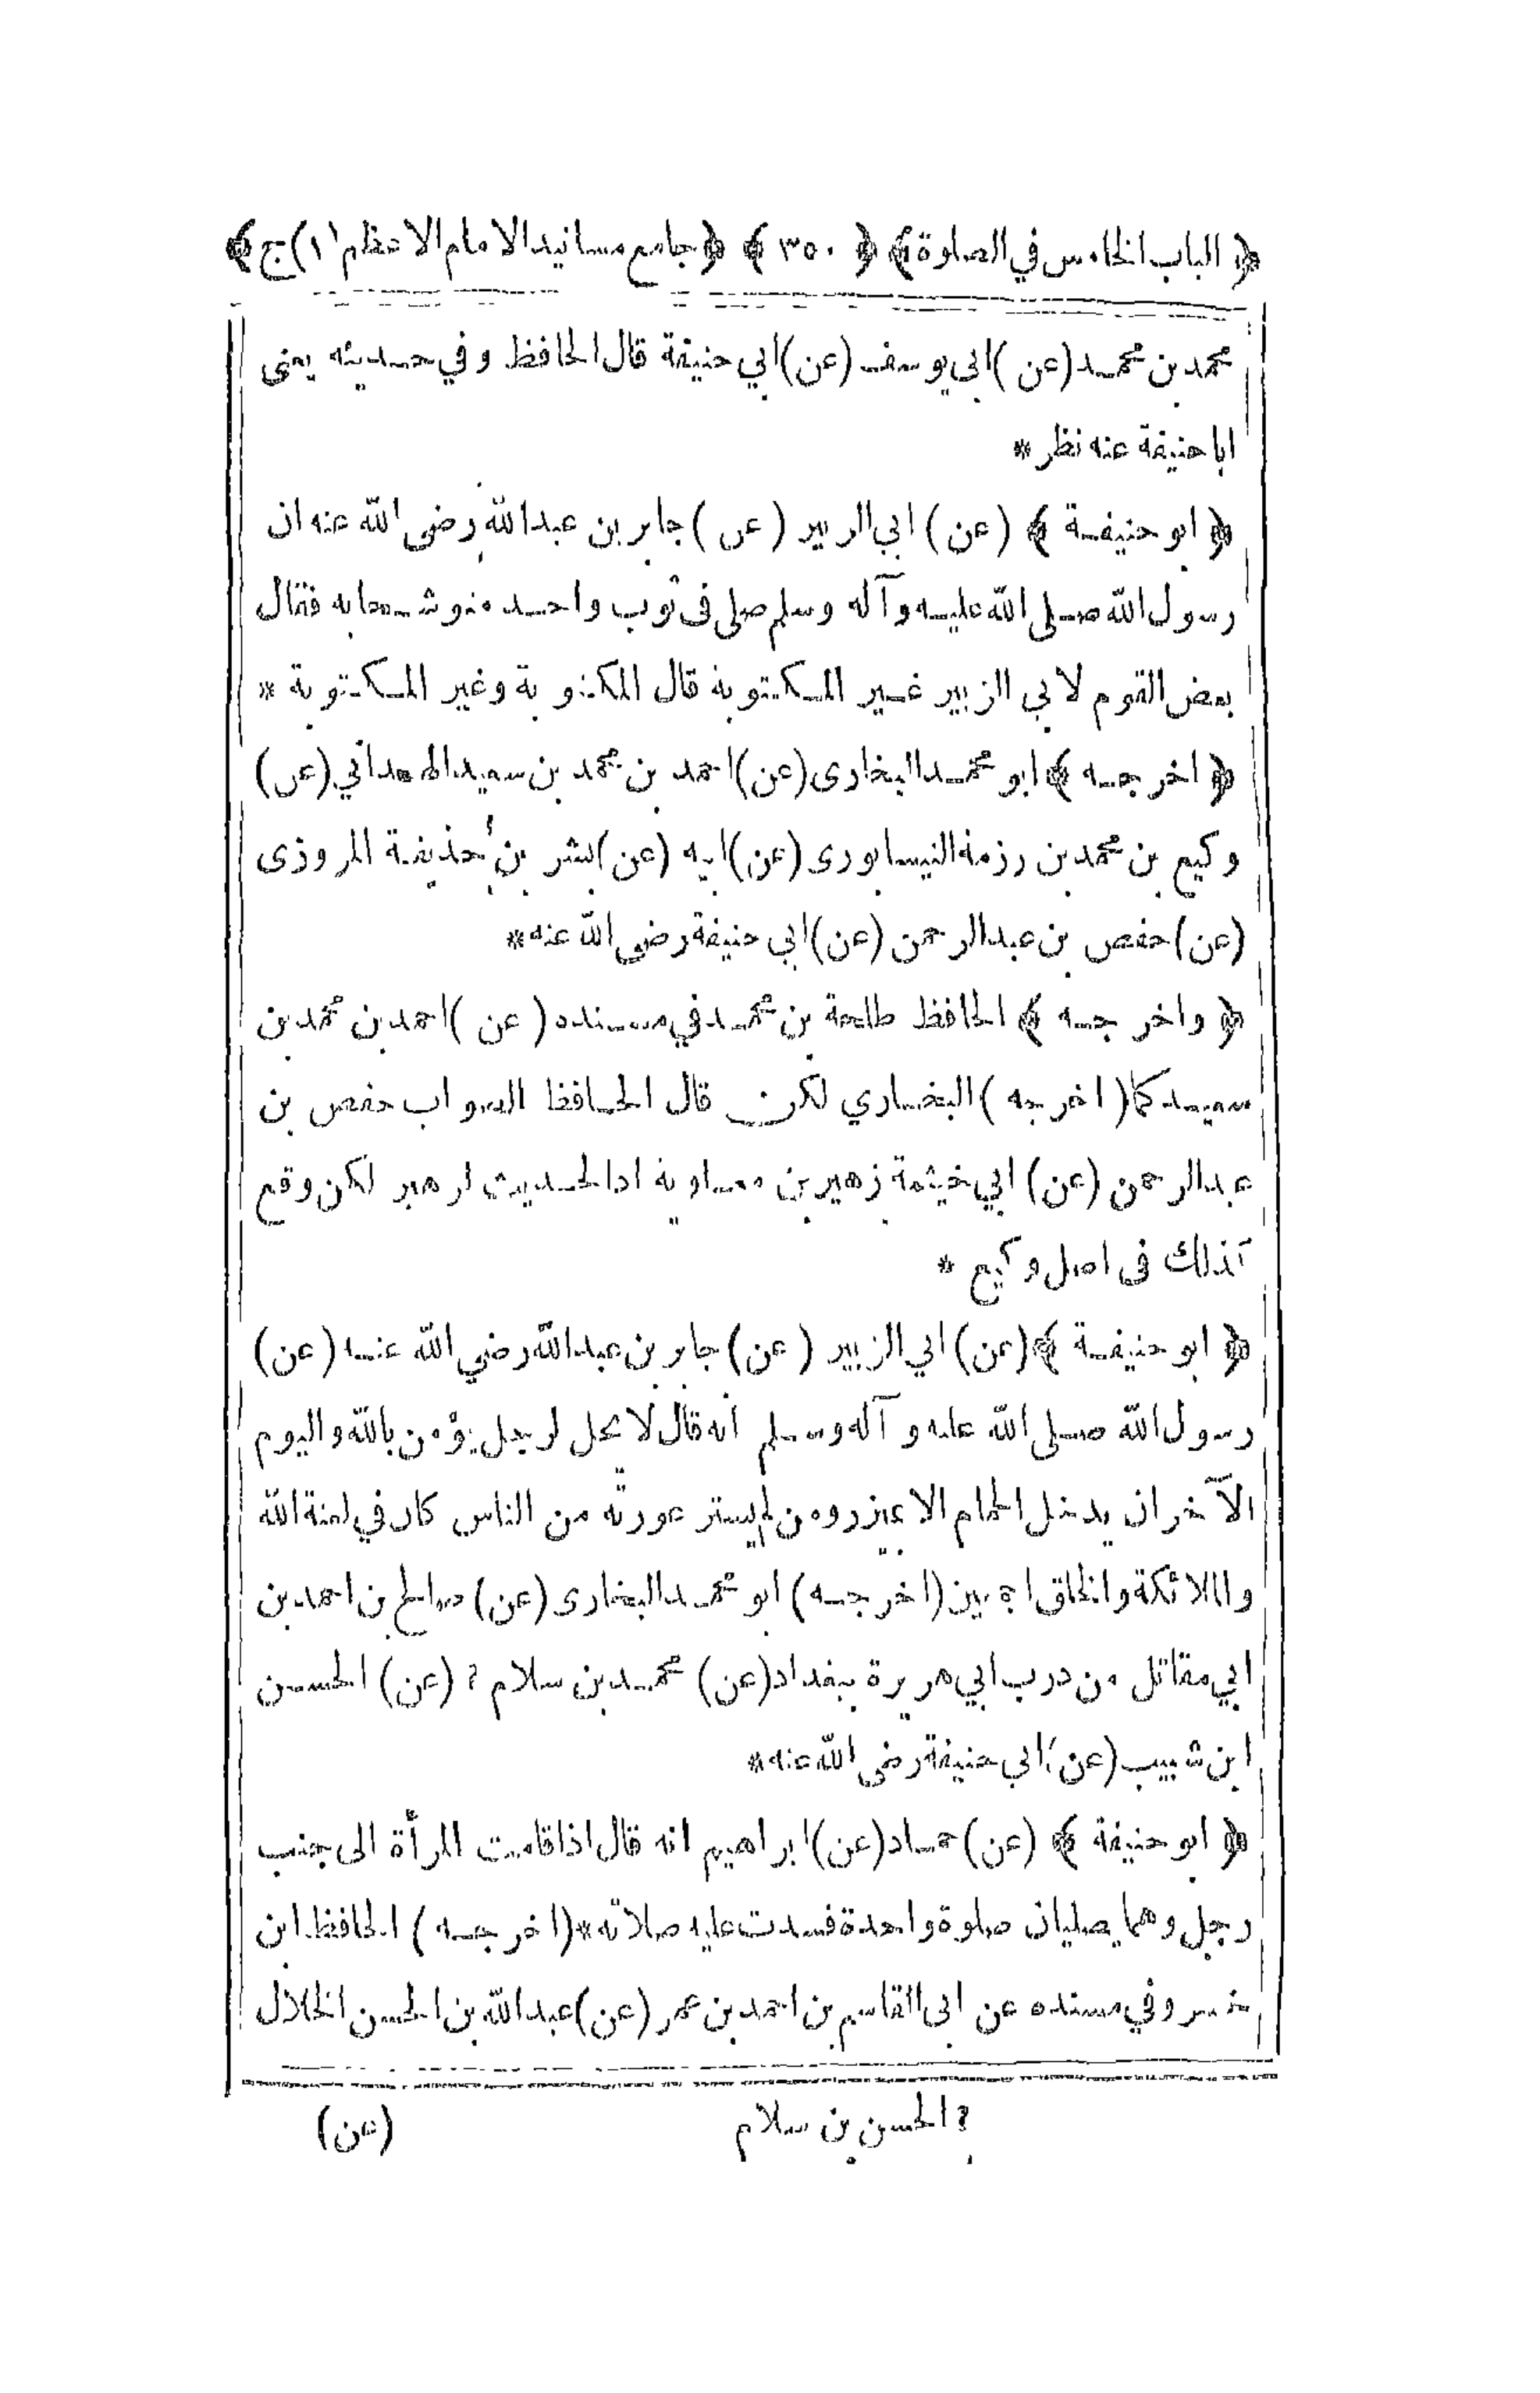 ﴿ الباب الخامس في الصلوة ﴾ ﴿ ٣٥٠ ﴾ ﴿ جامع مسانيد الامام الاعظم (١) ج ﴾
محمد بن محمد (عن) ابى يوسف (عن) ابي حنيفة قال الحافظ وفي حديثه يعنى
ابا حنيفة عنه نظر *
﴿ ابو حنيفة ﴾ (عن) ابي الزبير (عن) جابر بن عبد الله رضى الله عنه ان
رسول الله صلى الله عليه وآله وسلم صلى فى ثوب واحد متوشحا به فقال
بعض القوم لابي الزبير غير المكتوبة قال المكتوبة وغير المكتوبة *
﴿ اخرجه ﴾ ابو محمد البخارى (عن) احمد بن محمد بن سعيد الهمداني (عن)
وكيع بن محمد بن رزمة النيسابورى (عن) ابيه (عن) بشر بن حذيفة المروزى
(عن) حفص بن عبد الرحمن (عن) ابي حنيفة رضى الله عنه *
﴿ واخرجه ﴾ الحافظ طلحة بن محمد في مسنده (عن) احمد بن محمد بن
سعيد كما (اخرجه) البخاري لكن قال الحافظ الصواب حفص بن
عبد الرحمن (عن) ابي خيثمة زهير بن معاوية اذا الحديث لزهير لكن وقع
كذلك فى اصل وكيع *
﴿ ابو حنيفة ﴾ (عن) ابي الزبير (عن) جابر بن عبد الله رضي الله عنه (عن)
رسول الله صلى الله عليه وآله وسلم انه قال لا يحل لرجل يؤمن بالله واليوم
الآخر ان يدخل الحمام الا بميزر ومن لم يستر عورته من الناس كان في لعنة الله
والملائكة والخلق اجمعين (اخرجه) ابو محمد البخارى (عن) صالح بن احمد بن
ابي مقاتل من درب ابي هريرة ببغداد (عن) محمد بن سلام ? (عن) الحسن
ابن شبيب (عن) ابي حنيفة رضى الله عنه *
﴿ ابو حنيفة ﴾ (عن) حماد (عن) ابراهيم انه قال اذا قامت المرأة الى جنب
رجل وهما يصليان صلوة واحدة فسدت عليه صلاته * (اخرجه) الحافظ ابن
خسرو في مسنده عن ابى القاسم بن احمد بن عمر (عن) عبد الله بن الحسن الخلال
? الحسن بن سلام
(عن)